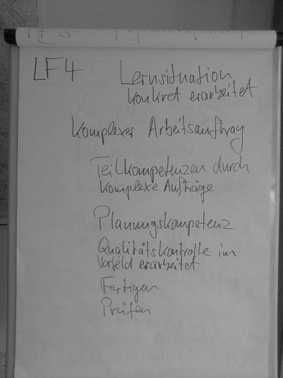 LF4 Lernsituation
konkret erarbeitet
Komplexer Arbeitsauftrag
Teilkompetenzen durch
komplexe Aufträge
Planungskompetenz
Qualitätskontrolle im
Vorfeld erarbeitet
Fertigen
Prüfen